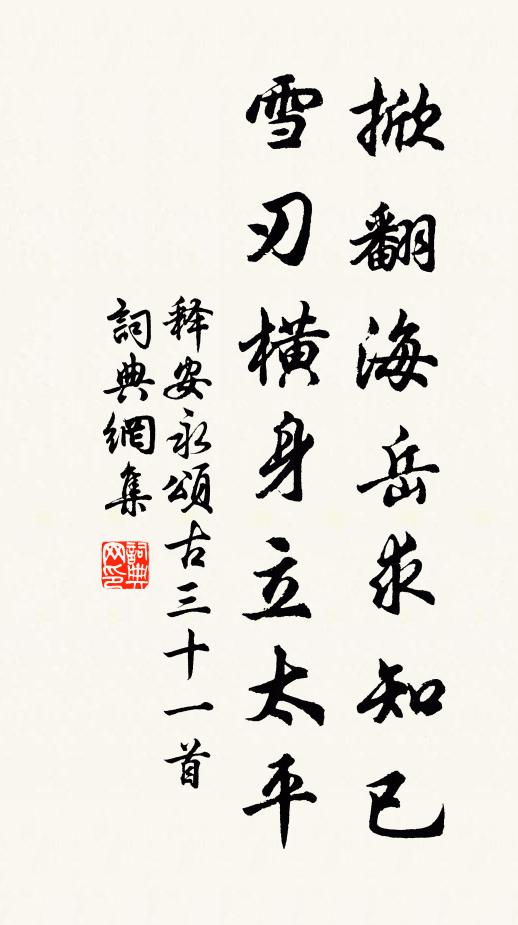 掀翻海岳求知已
雪刃横身立太平
释安永頌古三十一首
詞典網集
詞典网印